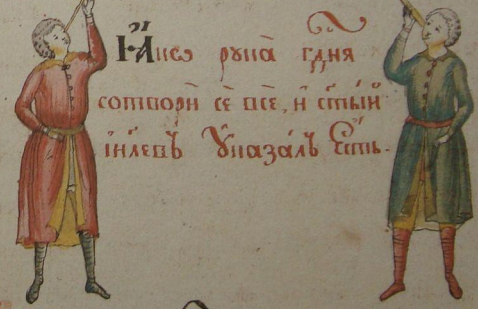 Ꙗкѡ рука̀ гд҇ня
сотворѝ сѐ всѐ, и҆ ст҃ый
і҆и҃левъ Указалъ Есть.